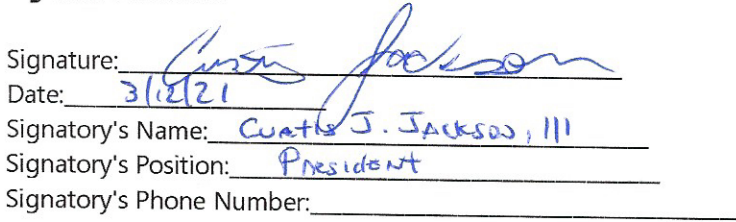 Signature: Curtis Jackson
Date: 3/12/21
Signatory's Name: Curtis J. Jackson, III
Signatory's Position: President
Signatory's Phone Number: